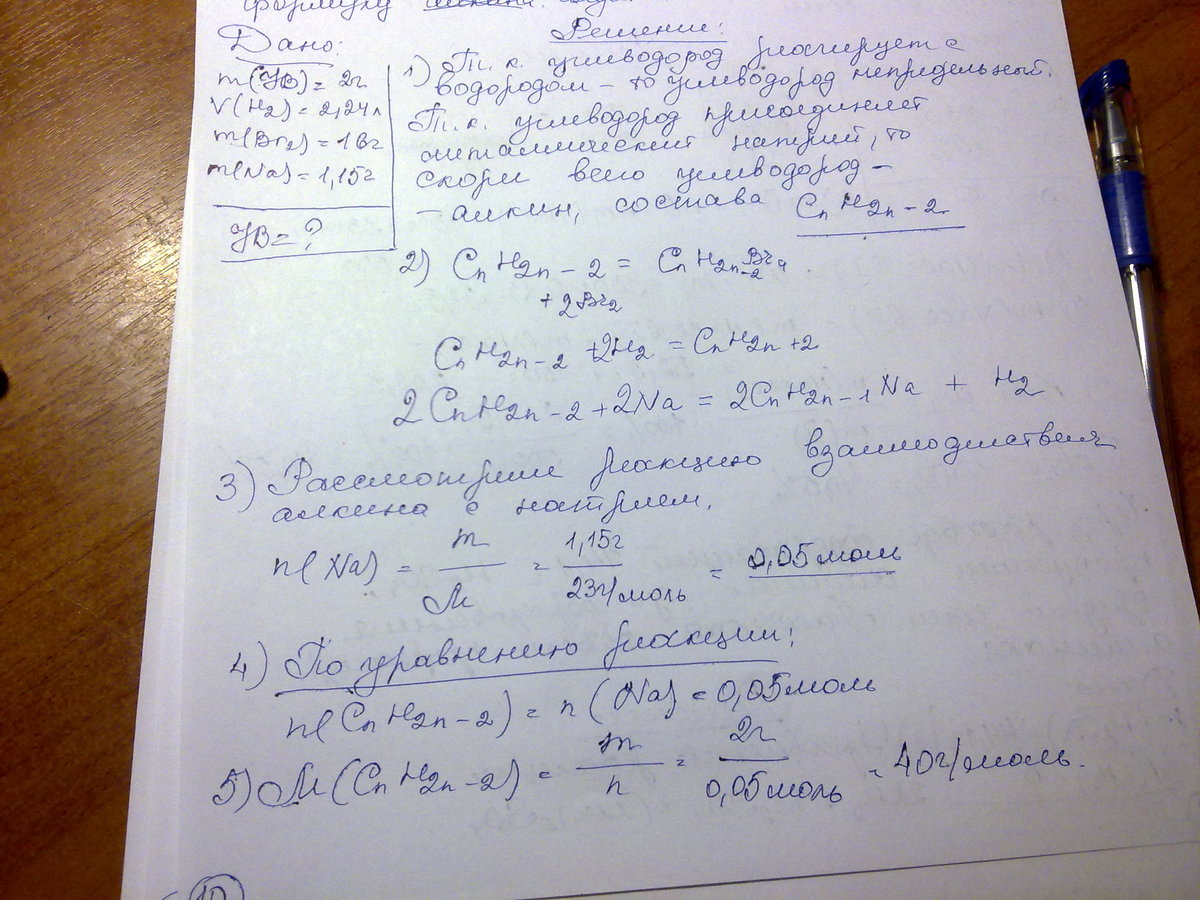 формулу алкина.
Дано:
m(УВ) = 2г
V(H2) = 2,24л
m(Br2) = 16г
m(Na) = 1,15г
УВ = ?
Решение:
1) Т. к. углеводород реагирует с
водородом – то углеводород непредельный.
Т. к. углеводород присоединяет
металлический натрий, то
скорее всего углеводород –
– алкин, состава CnH2n-2
2) CnH2n-2 = CnH2n-2Br4
+ 2Br2
CnH2n-2 + 2H2 = CnH2n+2
2CnH2n-2 + 2Na = 2CnH2n-1Na + H2
3) Рассмотрим реакцию взаимодействия
алкина с натрием.
n(Na) = m/M = 1,15г/23г/моль = 0,05моль
4) По уравнению реакции:
n(CnH2n-2) = n(Na) = 0,05моль
5) M(CnH2n-2) = m/n = 2г/0,05моль = 40г/моль.
10